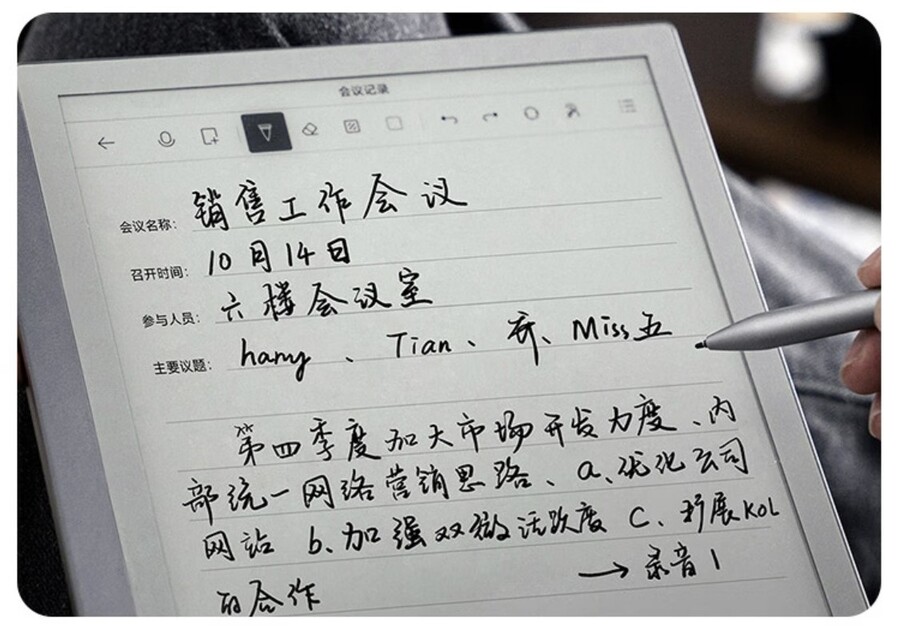 会议记录
会议名称: 销售工作会议
召开时间: 10月14日
参与人员: 六楼会议室
主要议题: harry、Tian、乔、Miss五
第四季度加大市场开发力度、内
部统一网络营销思路、a、优化公司
网站 b、加强双微活跃度 C、扩展KOL
的合作 → 录音1